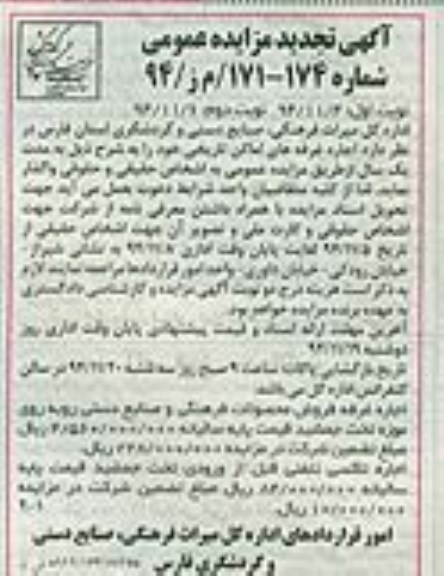 آگهی تجدید مزایده عمومی
شماره ۱۷۴-۱۷۱/م ز/۹۴
نوبت اول: نوبت دوم:
اداره کل میراث فرهنگی، صنایع دستی و گردشگری استان فارس در
نظر دارد اجاره غرفه های اماکن تاریخی خود را به شرح ذیل به مدت
یک سال از طریق مزایده عمومی به اشخاص حقیقی و حقوقی واگذار
نماید. لذا از کلیه متقاضیان واجد شرایط دعوت بعمل می آید جهت
تحویل اسناد مزایده با همراه داشتن معرفی نامه از شرکت جهت
اشخاص حقوقی و کارت ملی و تصویر آن جهت اشخاص حقیقی از
تاریخ لغایت پایان وقت اداری به نشانی شیراز-
خیابان رودکی- خیابان داوری- واحد امور قراردادها مراجعه نمایند لازم
به ذکر است هزینه درج دو نوبت آگهی مزایده و کارشناسی دادگستری
به عهده برنده مزایده خواهد بود.
آخرین مهلت ارائه اسناد و قیمت پیشنهادی پایان وقت اداری روز
دوشنبه
تاریخ بازگشایی پاکات: ساعت ۹ صبح روز سه شنبه در سالن
کنفرانس اداره کل می باشد.
اجاره غرفه فروش محصولات فرهنگی و صنایع دستی روبه روی
موزه تخت جمشید قیمت پایه سالیانه ریال
مبلغ تضمین شرکت در مزایده ریال.
اجاره تاکسی تلفنی قبل از ورودی تخت جمشید قیمت پایه
سالیانه ریال مبلغ تضمین شرکت در مزایده
ریال.
امور قراردادهای اداره کل میراث فرهنگی، صنایع دستی
و گردشگری فارس